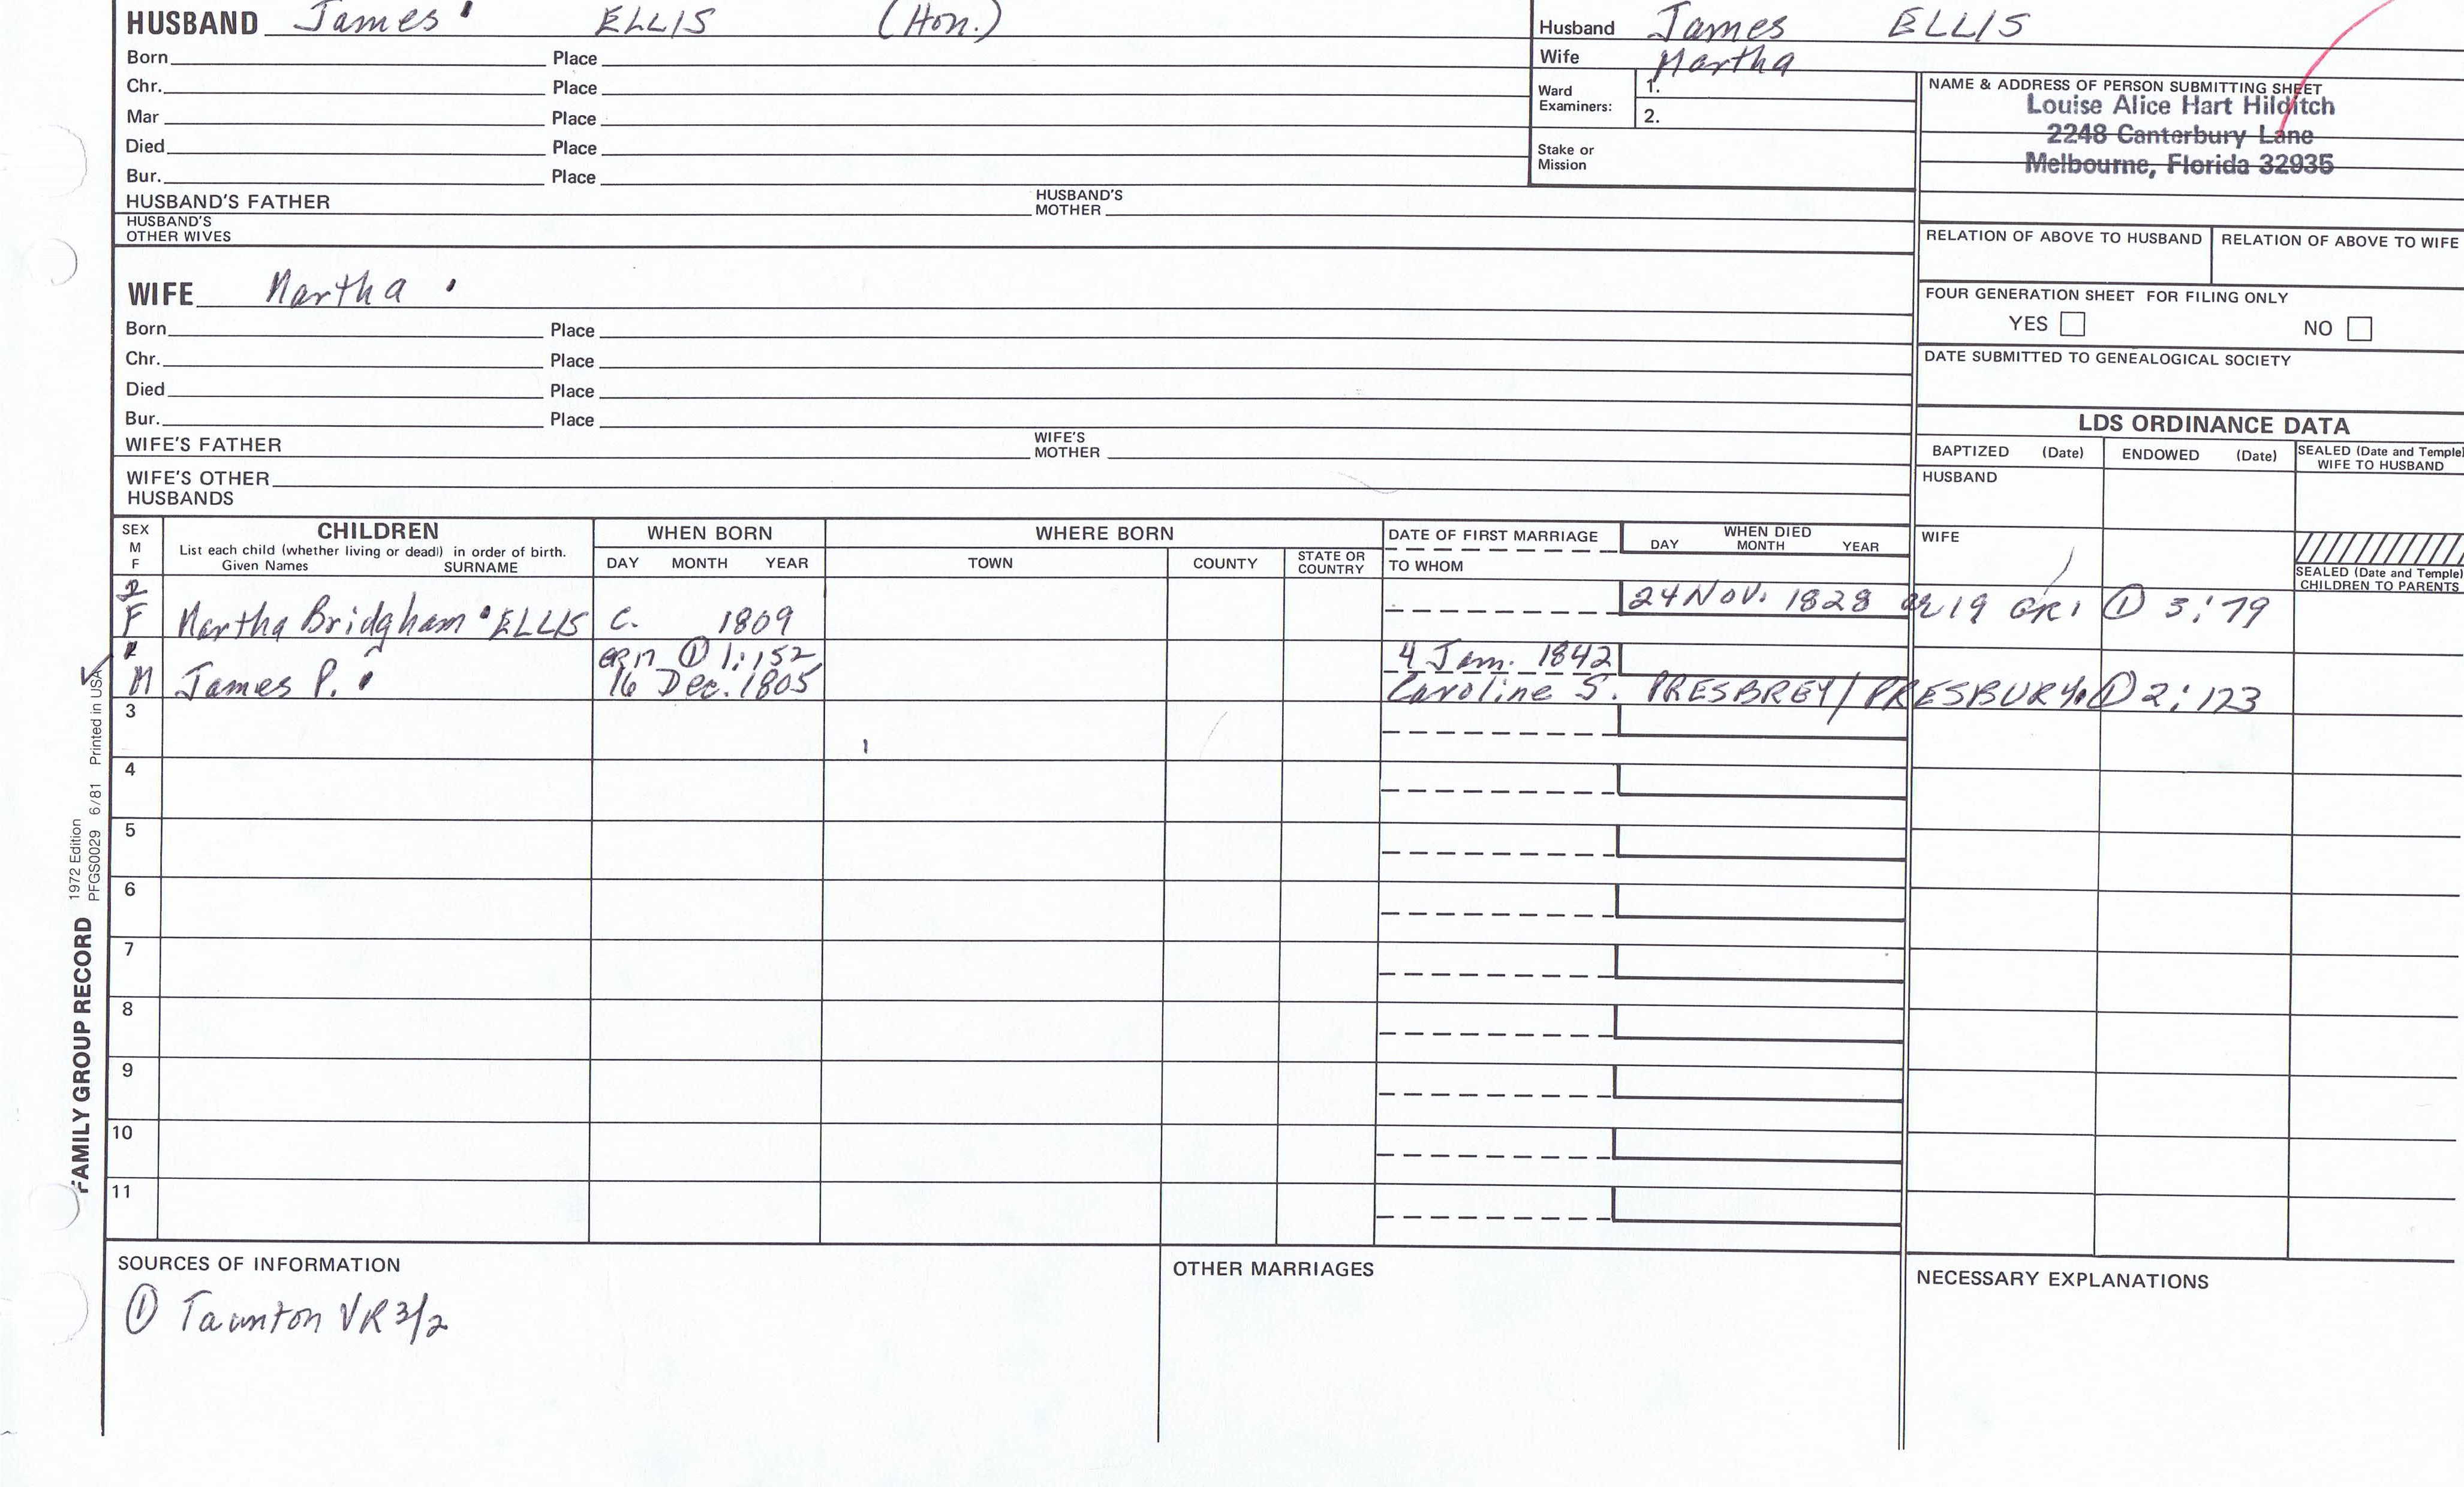 HUSBAND James ELLIS (Hon.)
Born Place
Chr. Place
Mar Place
Died Place
Bur. Place
HUSBAND'S FATHER HUSBAND'S MOTHER
HUSBAND'S OTHER WIVES
Husband James ELLIS
Wife Martha
Ward Examiners: 1.
2.
Stake or Mission
NAME & ADDRESS OF PERSON SUBMITTING SHEET
Louise Alice Hart Hilditch
2248 Canterbury Lane
Melbourne, Florida 32935
RELATION OF ABOVE TO HUSBAND RELATION OF ABOVE TO WIFE
FOUR GENERATION SHEET FOR FILING ONLY
YES NO
DATE SUBMITTED TO GENEALOGICAL SOCIETY
WIFE Martha
Born Place
Chr. Place
Died Place
Bur. Place
WIFE'S FATHER WIFE'S MOTHER
WIFE'S OTHER HUSBANDS
LDS ORDINANCE DATA
BAPTIZED (Date) ENDOWED (Date) SEALED (Date and Temple) WIFE TO HUSBAND
HUSBAND
WIFE
SEALED (Date and Temple) CHILDREN TO PARENTS
SEX M F
CHILDREN
List each child (whether living or dead) in order of birth.
Given Names SURNAME
WHEN BORN
DAY MONTH YEAR
WHERE BORN
TOWN COUNTY STATE OR COUNTRY
DATE OF FIRST MARRIAGE
TO WHOM
WHEN DIED
DAY MONTH YEAR
2 F Martha Bridgham ELLIS C. 1809 24 Nov. 1828 or 19 GR1 ① 3:79
① 1:152 4 Jan. 1842
M James P. 16 Dec. 1805 Caroline S. PRESBREY/PRESBURY ① 2:123
3
4
5
6
7
8
9
10
11
FAMILY GROUP RECORD
1972 Edition
PFGS0029 6/81 Printed in USA
SOURCES OF INFORMATION
① Taunton VR 3/2
OTHER MARRIAGES
NECESSARY EXPLANATIONS